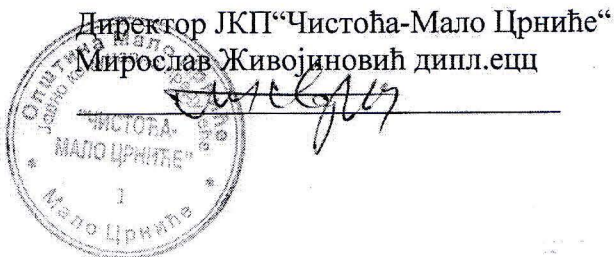 Директор ЈКП“Чистоћа-Мало Црниће“
Мирослав Живојиновић дипл.ецц
Општина Мало Црниће
Јавно комунално предузеће
"ЧИСТОЋА-
МАЛО ЦРНИЋЕ"
1
Мало Црниће